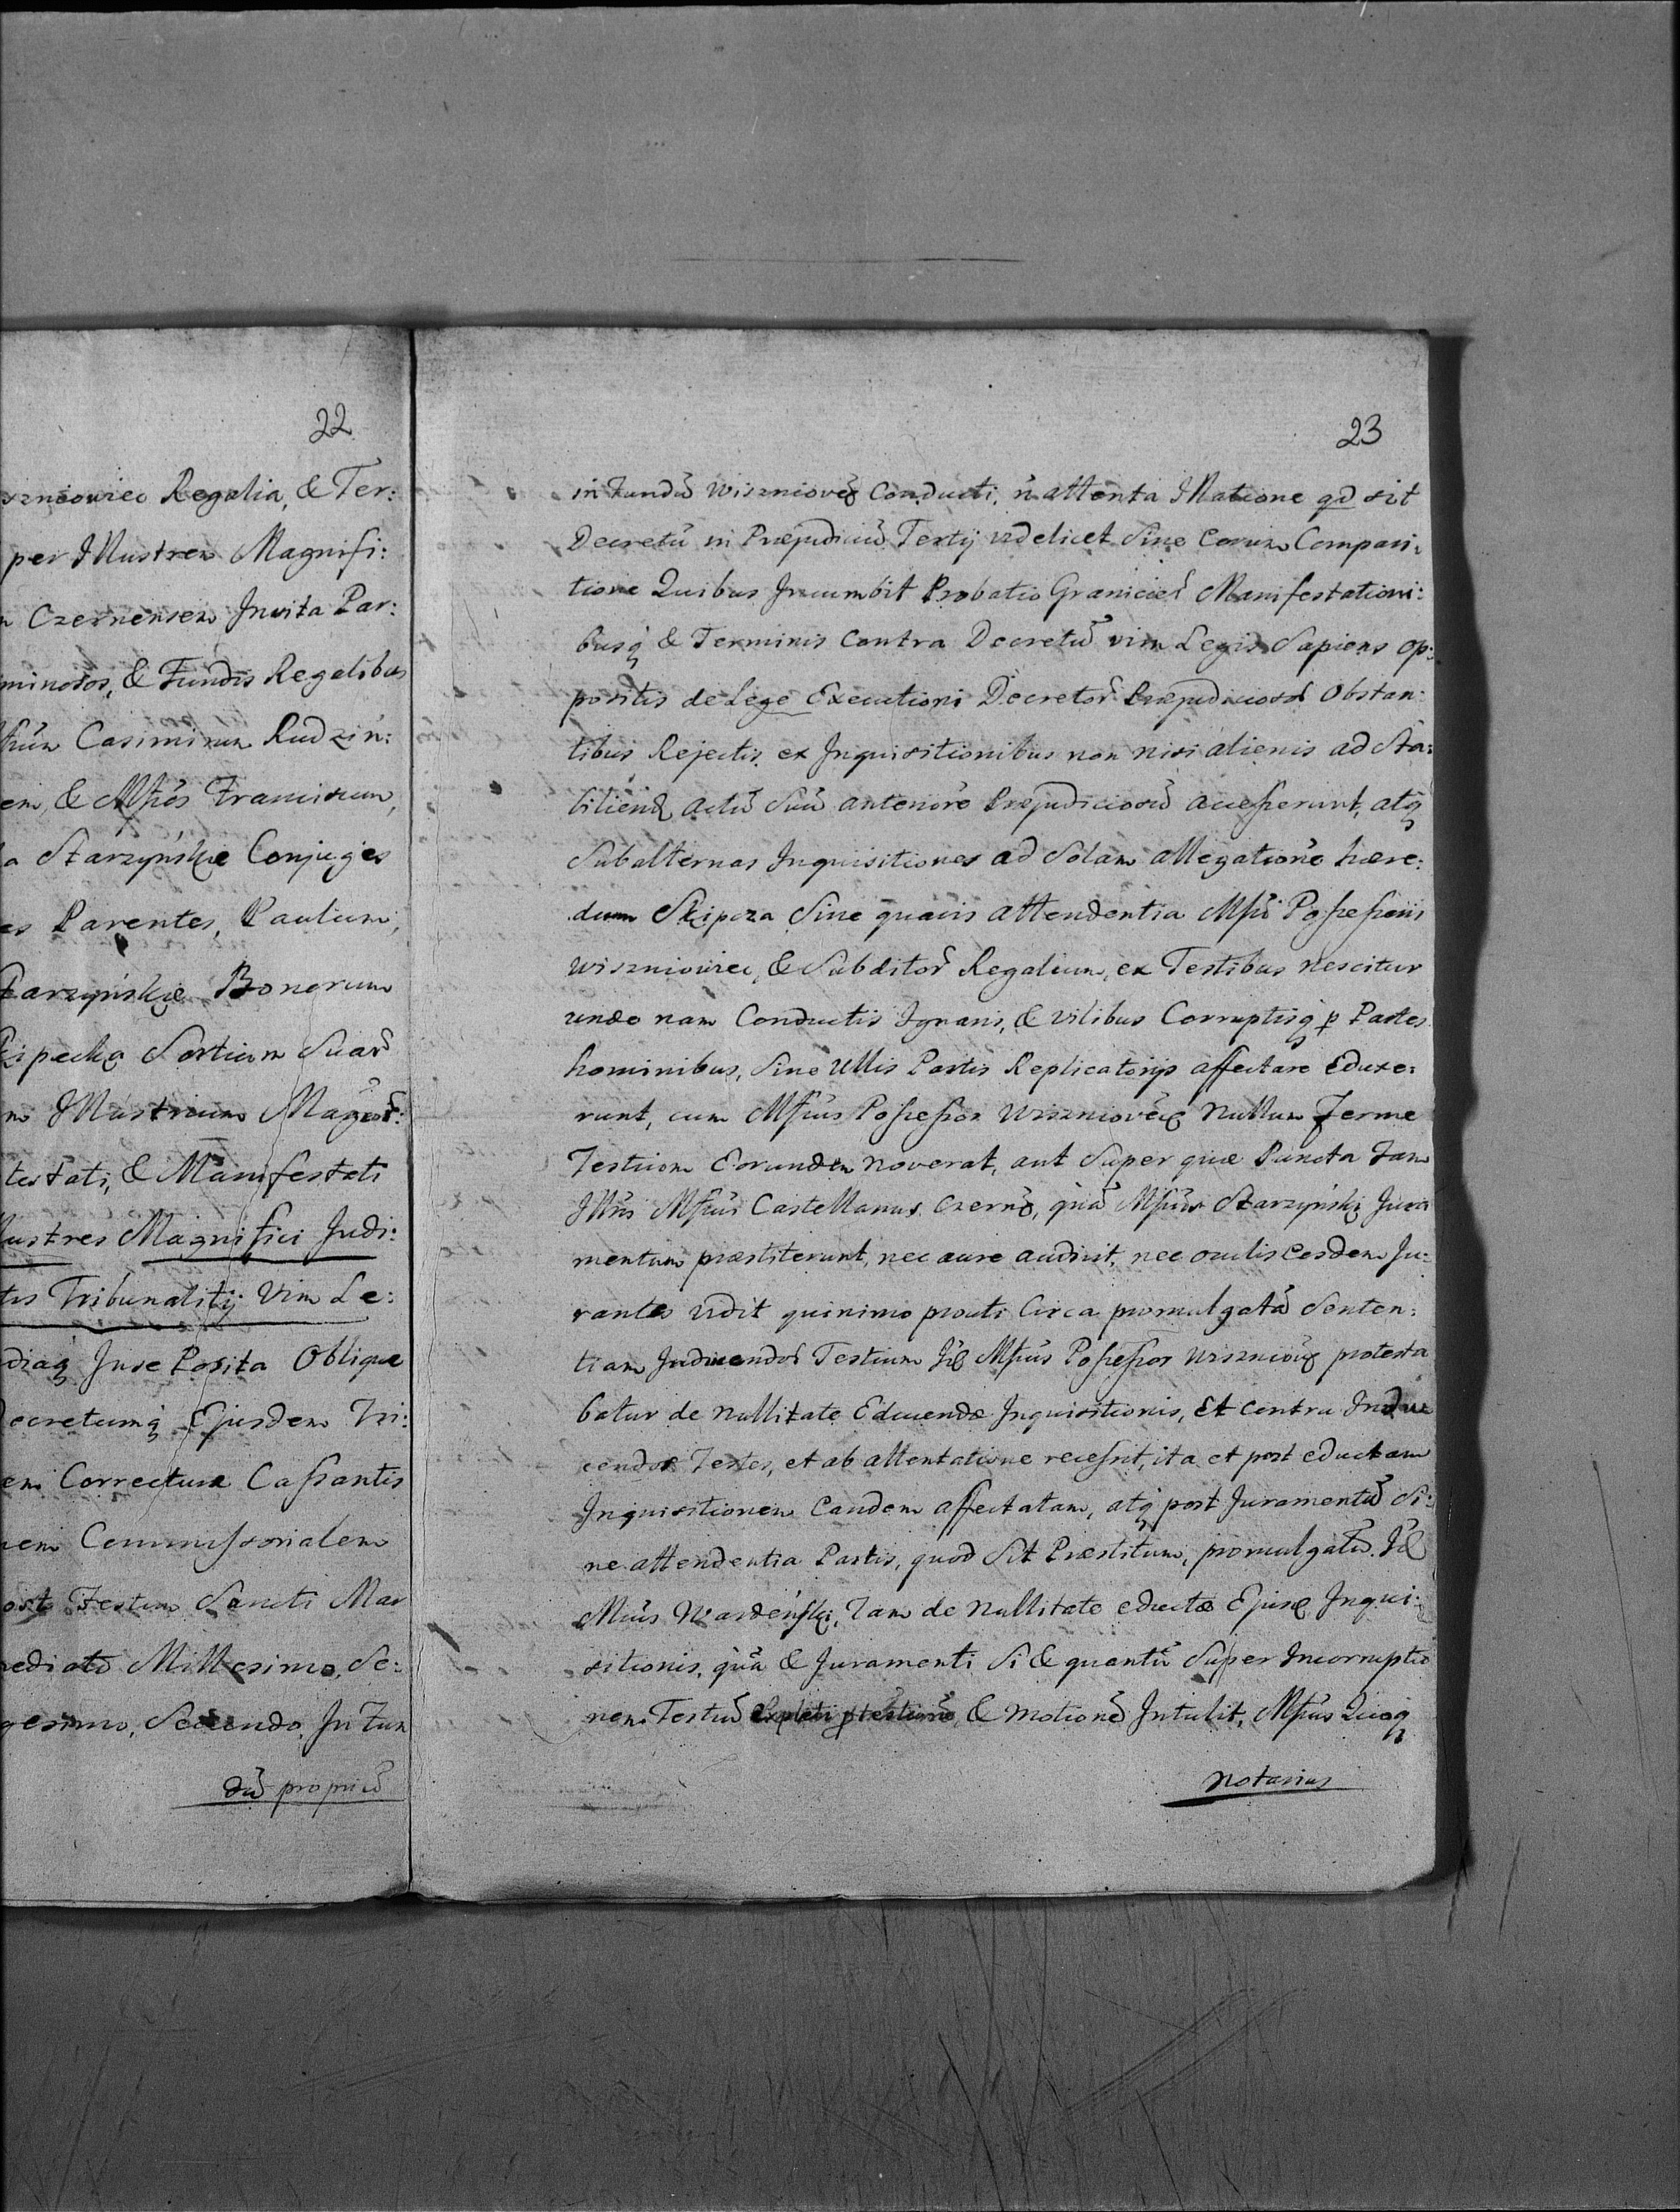 22
Regalia, & Ter:
per Illustrem Magnifi:
Czernensem Invita Par:
minosos, & Fundis Regalibus
Casimirum Rudzin:
em, & Mficos Franciscum,
a Starzyńskie Conjuges
es Parentes, Paulum,
tarzyńskie Bonorum
Sortium Suar
m Illustrium
testati, & Manifestati
lustres Magnifici Judi:
tus Tribunalitij Vim Le:
diaq Jure Posita Oblique
ecretumq Ejusdem Tri:
em Correcturæ Cassantis
nem Commissorialem
ost Festum Sancti Mar
nediato Millesimo, Se:
gesimo, Secundo, In Fun
dũ propriũ
23
in Fundũ Conducti, ñ attenta Illatione qd sit
Decretũ in Præjudiciũ Tertij videlicet Sine Eorum Compari:
tione Quibus Incumbit Probatio Granicier Manifestationi:
busq & Terminis Contra Decretũ vim Legis Sapiens op:
positis de Lege Executioni Decretor Præjudiciosor Obstan:
tibus Rejectis, ex Inquisitionibus non nisi alienis ad Sta:
biliend actũ Suũ Præjudiciosũ accesserunt, atq
Subalternas Inquisitiones ad Solam allegatione hære:
dum Skipcza Sine quavis attendentia Possessoris
Wiszniowiec, & Subditor Regalium, ex Testibus nescitur
unde nam Conductis Ignaris, & vilibus Corruptisq p Partes
hominibus, Sine Ullis Partis Replicatorijs affectare Eduxe:
runt, cum Possessor Nullum Ferme
Testium Eorundem noverat, aut Super quæ Puncta Tam
Castellanus Czernẽ, quã Starzyński Jura
mentum præstiterunt, nec aure audivit, nec oculis eosdem Ju:
rantes vidit quinimo prouti Circa promulgatã Senten:
tiam Inducendor Testium Possessor protesta
batur de Nullitate Educendæ Inquisitionis, Et contra Indu
cendos Testes, et ab attentatione recessit, ita et post eductam
Inquisitionem Eandem affectatam, atq post Juramentũ Si:
ne attendentia Partis, quod Sit Præstitum, promulgatũ.
Wardeński, Tam de Nullitate eductæ Inqui:
sitionis, quã & Juramenti Si & quantũ Super Incorruptio
nem Testiũ & Motionẽ Intulit, Quoq
Notarius